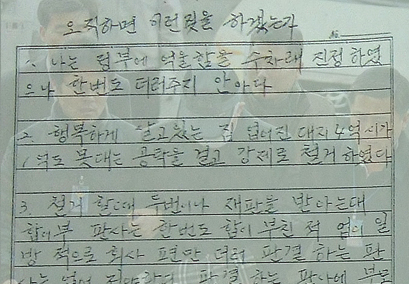 오직하면 이런짓을 하겠는가
1. 나는 정부에 억울함을 수차래 진정하였
으나 한번도 더러주지 안아다
2. 행복하게 살고있는 집 없어진 대지 4억 시가
1억도 못대는 공탁을 걸고 강제로 철거 하였다
3. 철거 할때 두번이나 재판을 받아는대
합이부 판사는 한번도 합이 부친 적 없이 일
방적으로 회사 편만 더러 판결 하는 판
판결 하는